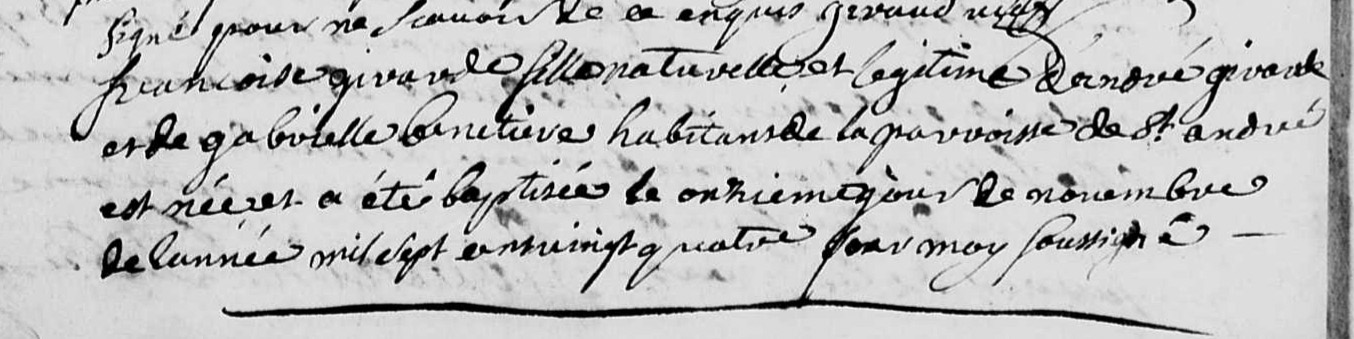 signé pour ne scavoir de ce enquis giraud
francoise girarde fille naturelle et legitime d'andré girard
et de gabrielle habitans de la parroisse de St. andré
est née et a été baptisée le onzieme jour de novembre
de l'année mil sept cent vingt quatre par moy soussigné